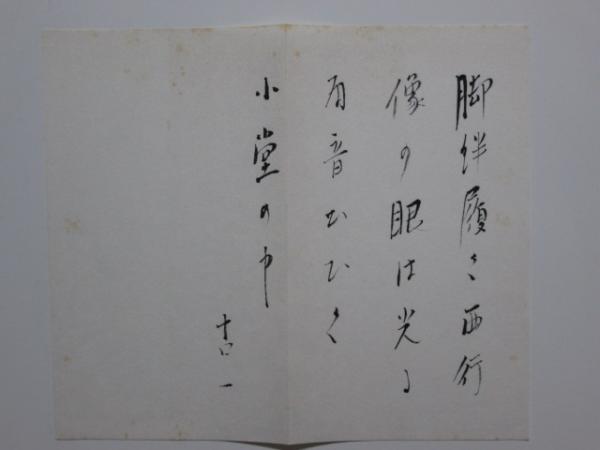 脚絆履き西行
像の眼は光る
雨音ひびく
小堂の中
吉一